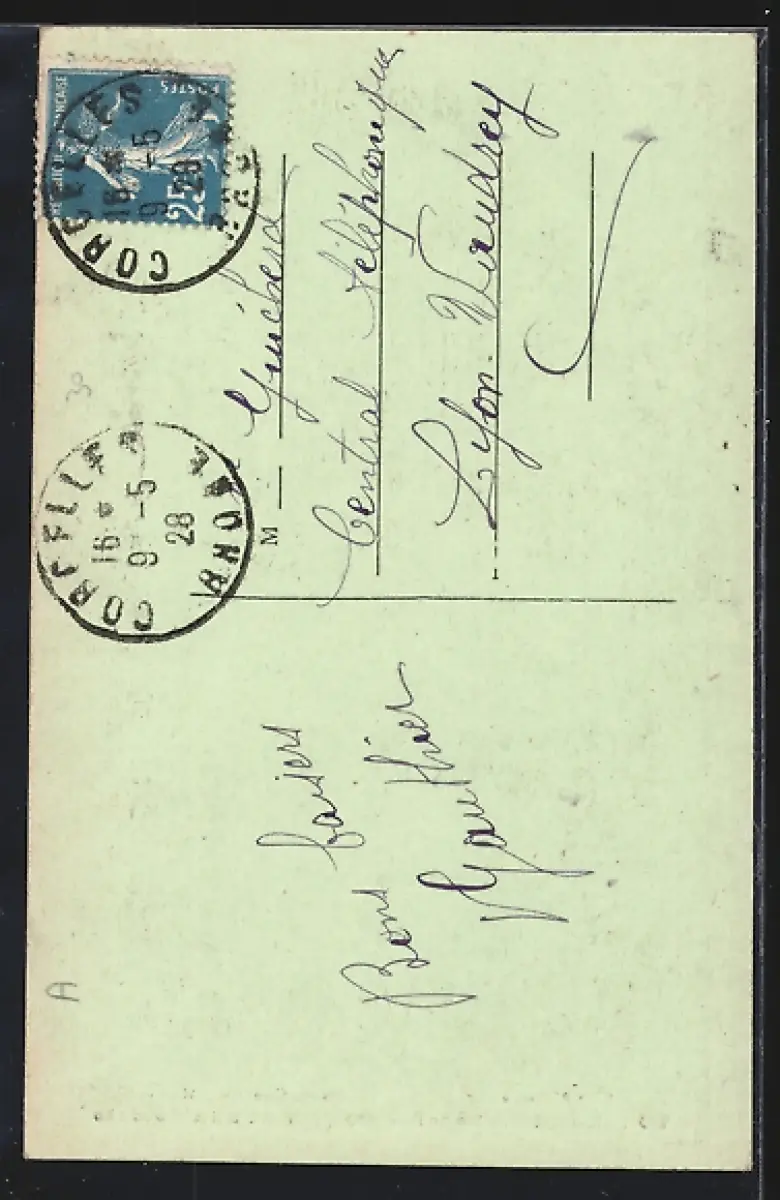 Bons baisers
V Gauthier
M Guichard
Central téléphonique
Lyon. Vaudrey
RÉPUBLIQUE FRANÇAISE
POSTES
25
CORCELLES
16 *
9 -5
28
RHONE
CORCELLES
16 *
9 -5
28
RHONE
30
A